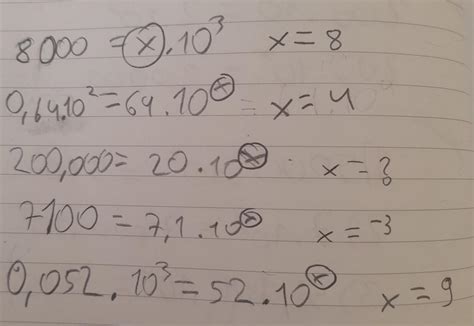 8000 = x . 10³ x = 8
0,64.10² = 64 . 10ˣ x = 4
200,000 = 20 . 10ˣ x = 3
7100 = 7,1 . 10ˣ x = -3
0,052 . 10³ = 52 . 10ˣ x = 9